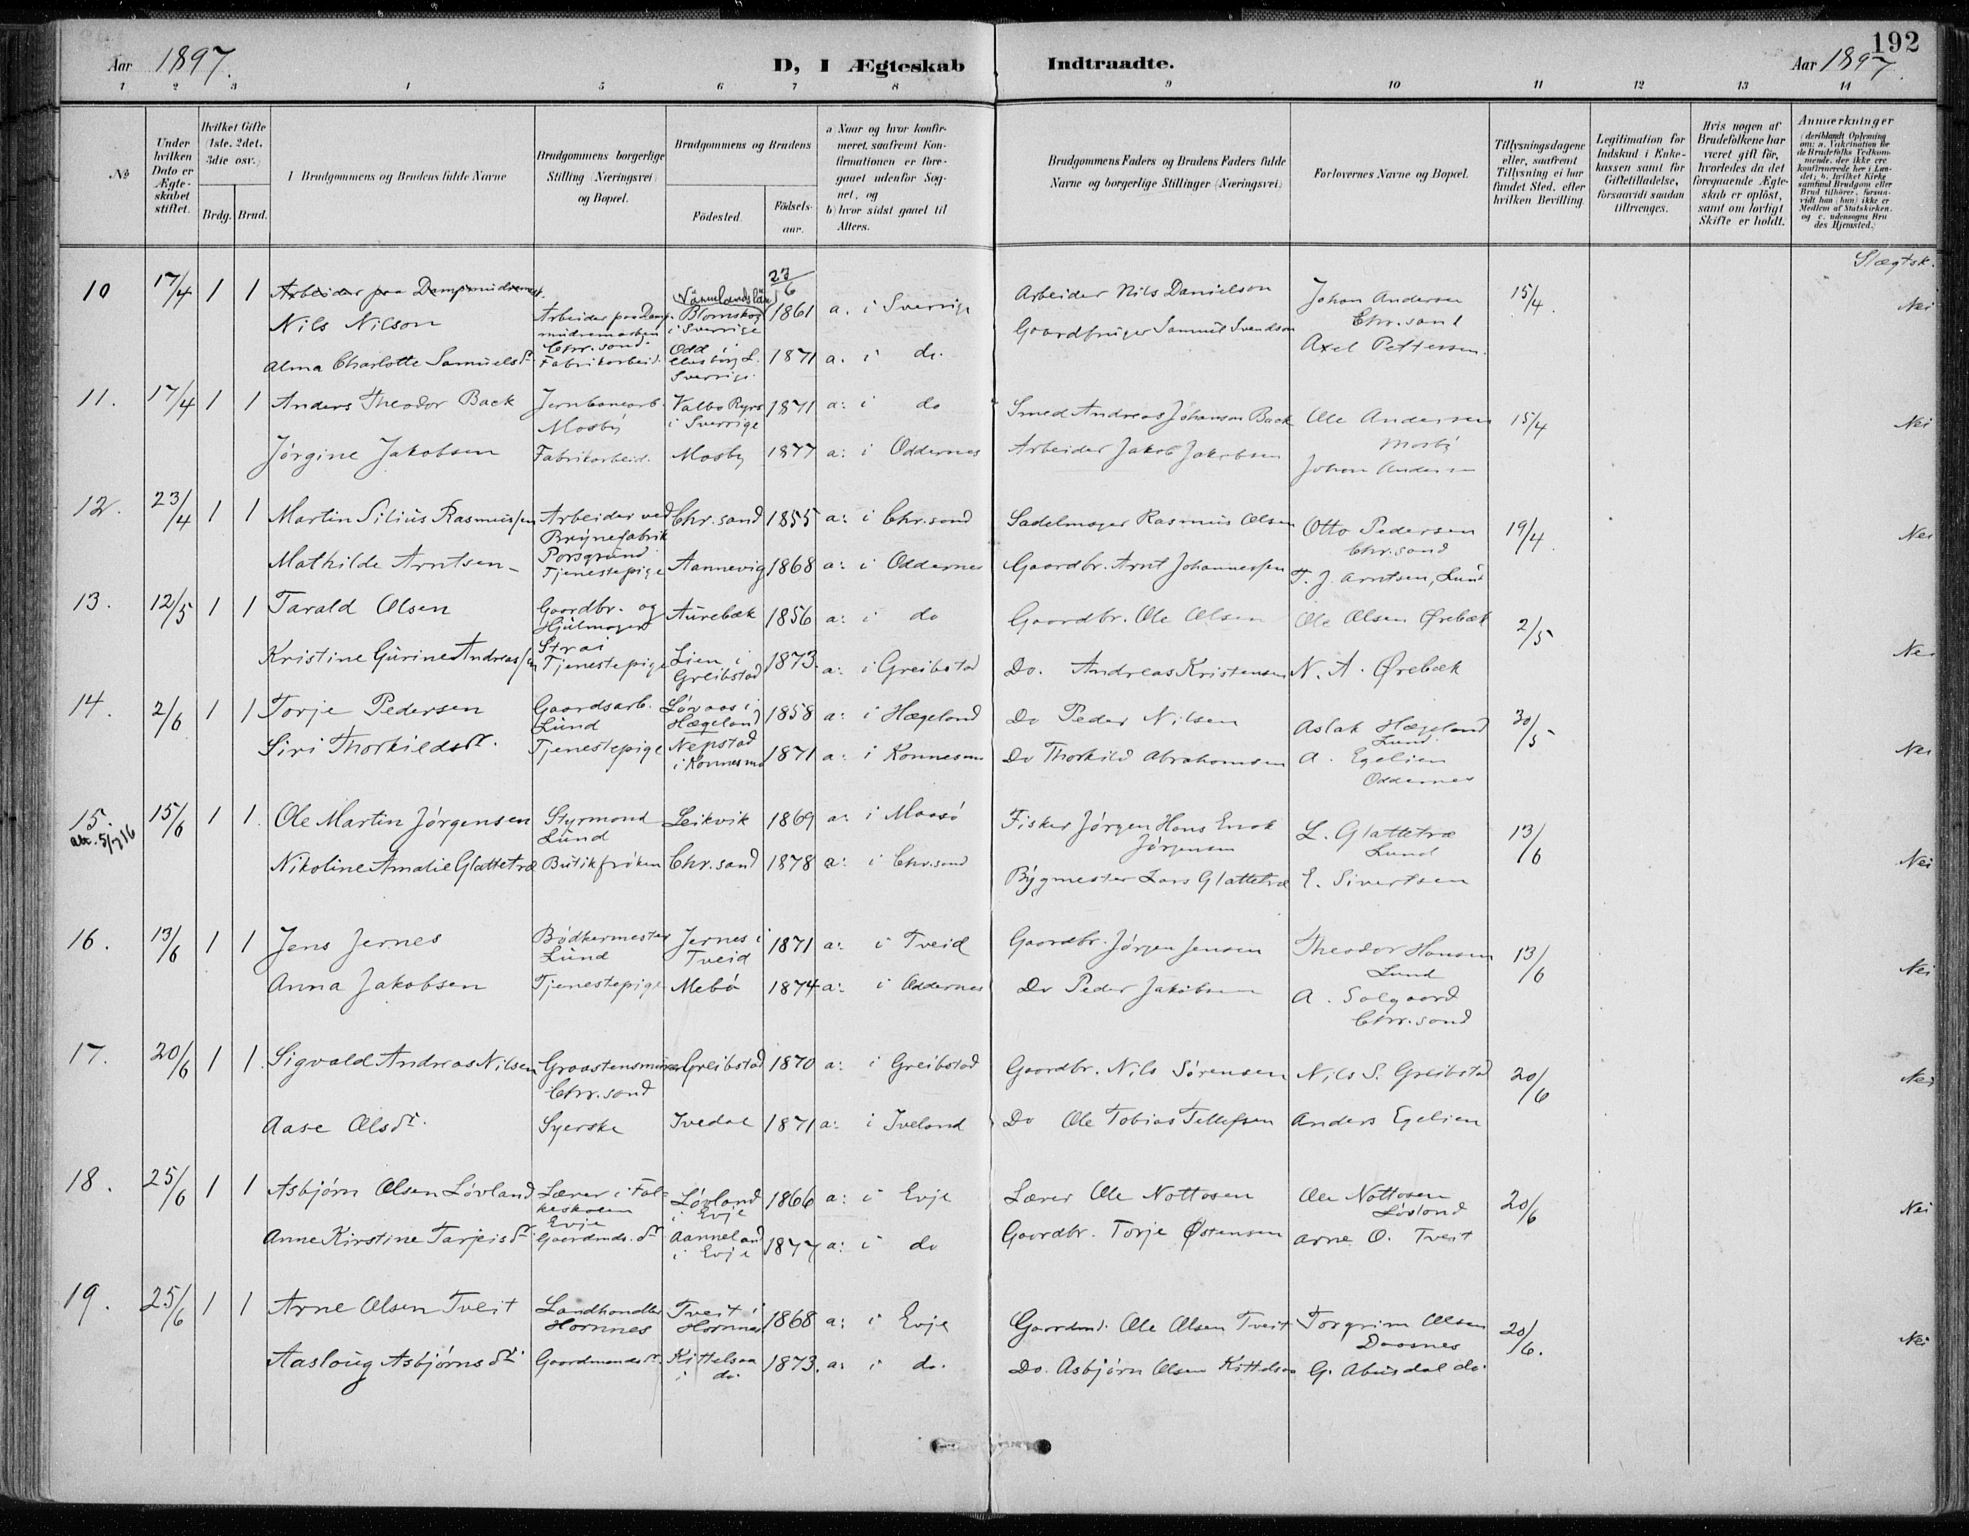 192
Aar 1897.
D, I Ægteskab Indtraadte.
Aar 1897.
1 2 3 4 5 6 7 8 9 10 11 12 13 14
No
Under hvilken Dato er Ægteskabet stiftet.
Hvilket Gifte (1ste, 2det, 3die osv.)
Brdg. Brud.
Brudgommens og Brudens fulde Navne
Brudgommens borgerlige Stilling (Næringsvei) og Bopæl.
Brudgommens og Brudens
Fødested. Fødselsaar.
a) Naar og hvor konfirmeret, saafremt Konfirmationen er foregaaet udenfor Sognet, og
b) hvor sidst gaaet til Alters.
Brudgommens Faders og Brudens Faders fulde Navne og borgerlige Stillinger (Næringsvei)
Forlovernes Navne og Bopæl.
Tillysningsdagene eller, saafremt Tillysning ei har fundet Sted, efter hvilken Bevilling.
Legitimation for Indskud i Enkekassen samt for Giftetilladelse, forsaavidt saadan tiltrænges.
Hvis nogen af Brudefolkene har været gift før, hvorledes da det foregaaende Ægteskab er opløst, samt om lovligt Skifte er holdt.
Anmærkninger
Slægtsk.
10 17/4 1 1 Arbeider paa Dampmudremask.
Nils Nilson Arbeider paa Dampmudremaskin Chr.sand. Värmlandslän Blomskog i Sverrige 23/6 1861 a. i Sverrige Arbeider Nils Danielson Johan Andersen Chr.sand 15/4 Nei
Alma Charlotte Samuelsdr Fabrikarbeid. Odd Elfsborg L. Sverrige 1871 a. i do. Gaardbruger Samuel Svendson Axel Pettersen.
11. 17/4 1 1 Anders Theodor Back Jernbanearb. Mosby Valbo Ryrs i Sverrige 1871 a: i do Smed Andreas Johanson Back Ole Andersen Mosby 15/4 Nei
Jørgine Jakobsen Fabrikarbeid. Mosby 1877 a: i Oddernes Arbeider Jakob Jakobsen Johan Andersen
12. 23/4 1 1 Martin Silius Rasmussen Arbeider ved Brynefabrik Porsgrund Chr.sand 1855 a: i Chr.sand Sadelmager Rasmus Olsen Otto Pedersen Chr.sand 19/4. Nei
Mathilde Arntsen - Tjenestepige Aannevig 1868 a: i Oddernes Gaardbr. Arnt Johannessen T. J. Arntsen, Lund
13. 12/5 1 1 Tarald Olsen Gaardbr. og Hjulmager Strai Aurebæk 1856 a: i do Gaardbr. Ole Olsen Ole Olsen Ørebæk 2/5 Nei
Kristine Gurine Andreassen Tjenestepige Lien i Greibstad 1873. a: i Greibstad Do. Andreas Kristensen N. A. Ørebæk
14. 2/6 1 1 Torje Pedersen Gaardsarb. Lund Løvaas i Hægeland 1858 a: i Hægeland Do Peder Nilsen Aslak Hægeland Lund. 30/5 Nei
Siri Thorkildsdr. Tjenestepige Nepstad i Konnesmo 1871 a: i Konnesmo Do Thorkild Abrahamsen A. Egelien Oddernes
15. 15/6 1 1. Ole Martin Jørgensen Styrmand Lund Leikvik 1869 a: i Maasø Fisker Jørgen Hans Enok Jørgensen L. Glattetræ Lund 13/6 Nei
att. 5/7 16
Nikoline Amalie Glattetræ Butikfrøken Chr.sand 1878 a: i Chr.sand Bygmester Lars Glattetræ E. Sivertsen
16. 13/6 1 1 Jens Jernes Bødkermester Lund Jernes i Tveid 1871 a: i Tveid Gaardbr. Jørgen Jensen Theodor Hansen Lund 13/6 Nei
Anna Jakobsen Tjenestepige Mebø 1874 a: i Oddernes Do Peder Jakobsen A. Solgaard Chr.sand
17. 20/6 1 1. Sigvald Andreas Nilsen Graastensmurer Chr.sand Greibstad 1870 a: i Greibstad Gaardbr. Nils Sørensen Nils S. Greibstad 20/6 Nei
Aase Olsdr. Syerske Ivedal 1871 a: i Iveland Do Ole Tobias Tellefsen Anders Egelien
18. 25/6 1 1 Asbjørn Olsen Løvland Lærer i Folkeskolen Evje Løvland i Evje 1866 a: i Evje Lærer Ole Nottosen Ole Nottosen Løvland 20/6 Nei
Anne Kirstine Tarjeisdr. Gaardmds. dr. Aanneland i Evje 1877 a: i do Gaardbr. Torje Østensen Arne O. Tveit
19. 25/6 1 1 Arne Olsen Tveit Landhandler Hornnes Tveit i Hornnes 1868 a: i Evje Gaardmd. Ole Olsen Tveit Torgrim Olsen Daasnes 20/6. Nei
Aasloug Asbjørnsdr. Gaardmandsdr. Kittelsaa i do. 1873. a: i do. Do. Asbjørn Olsen Kittelsaa G. Abusdal do.